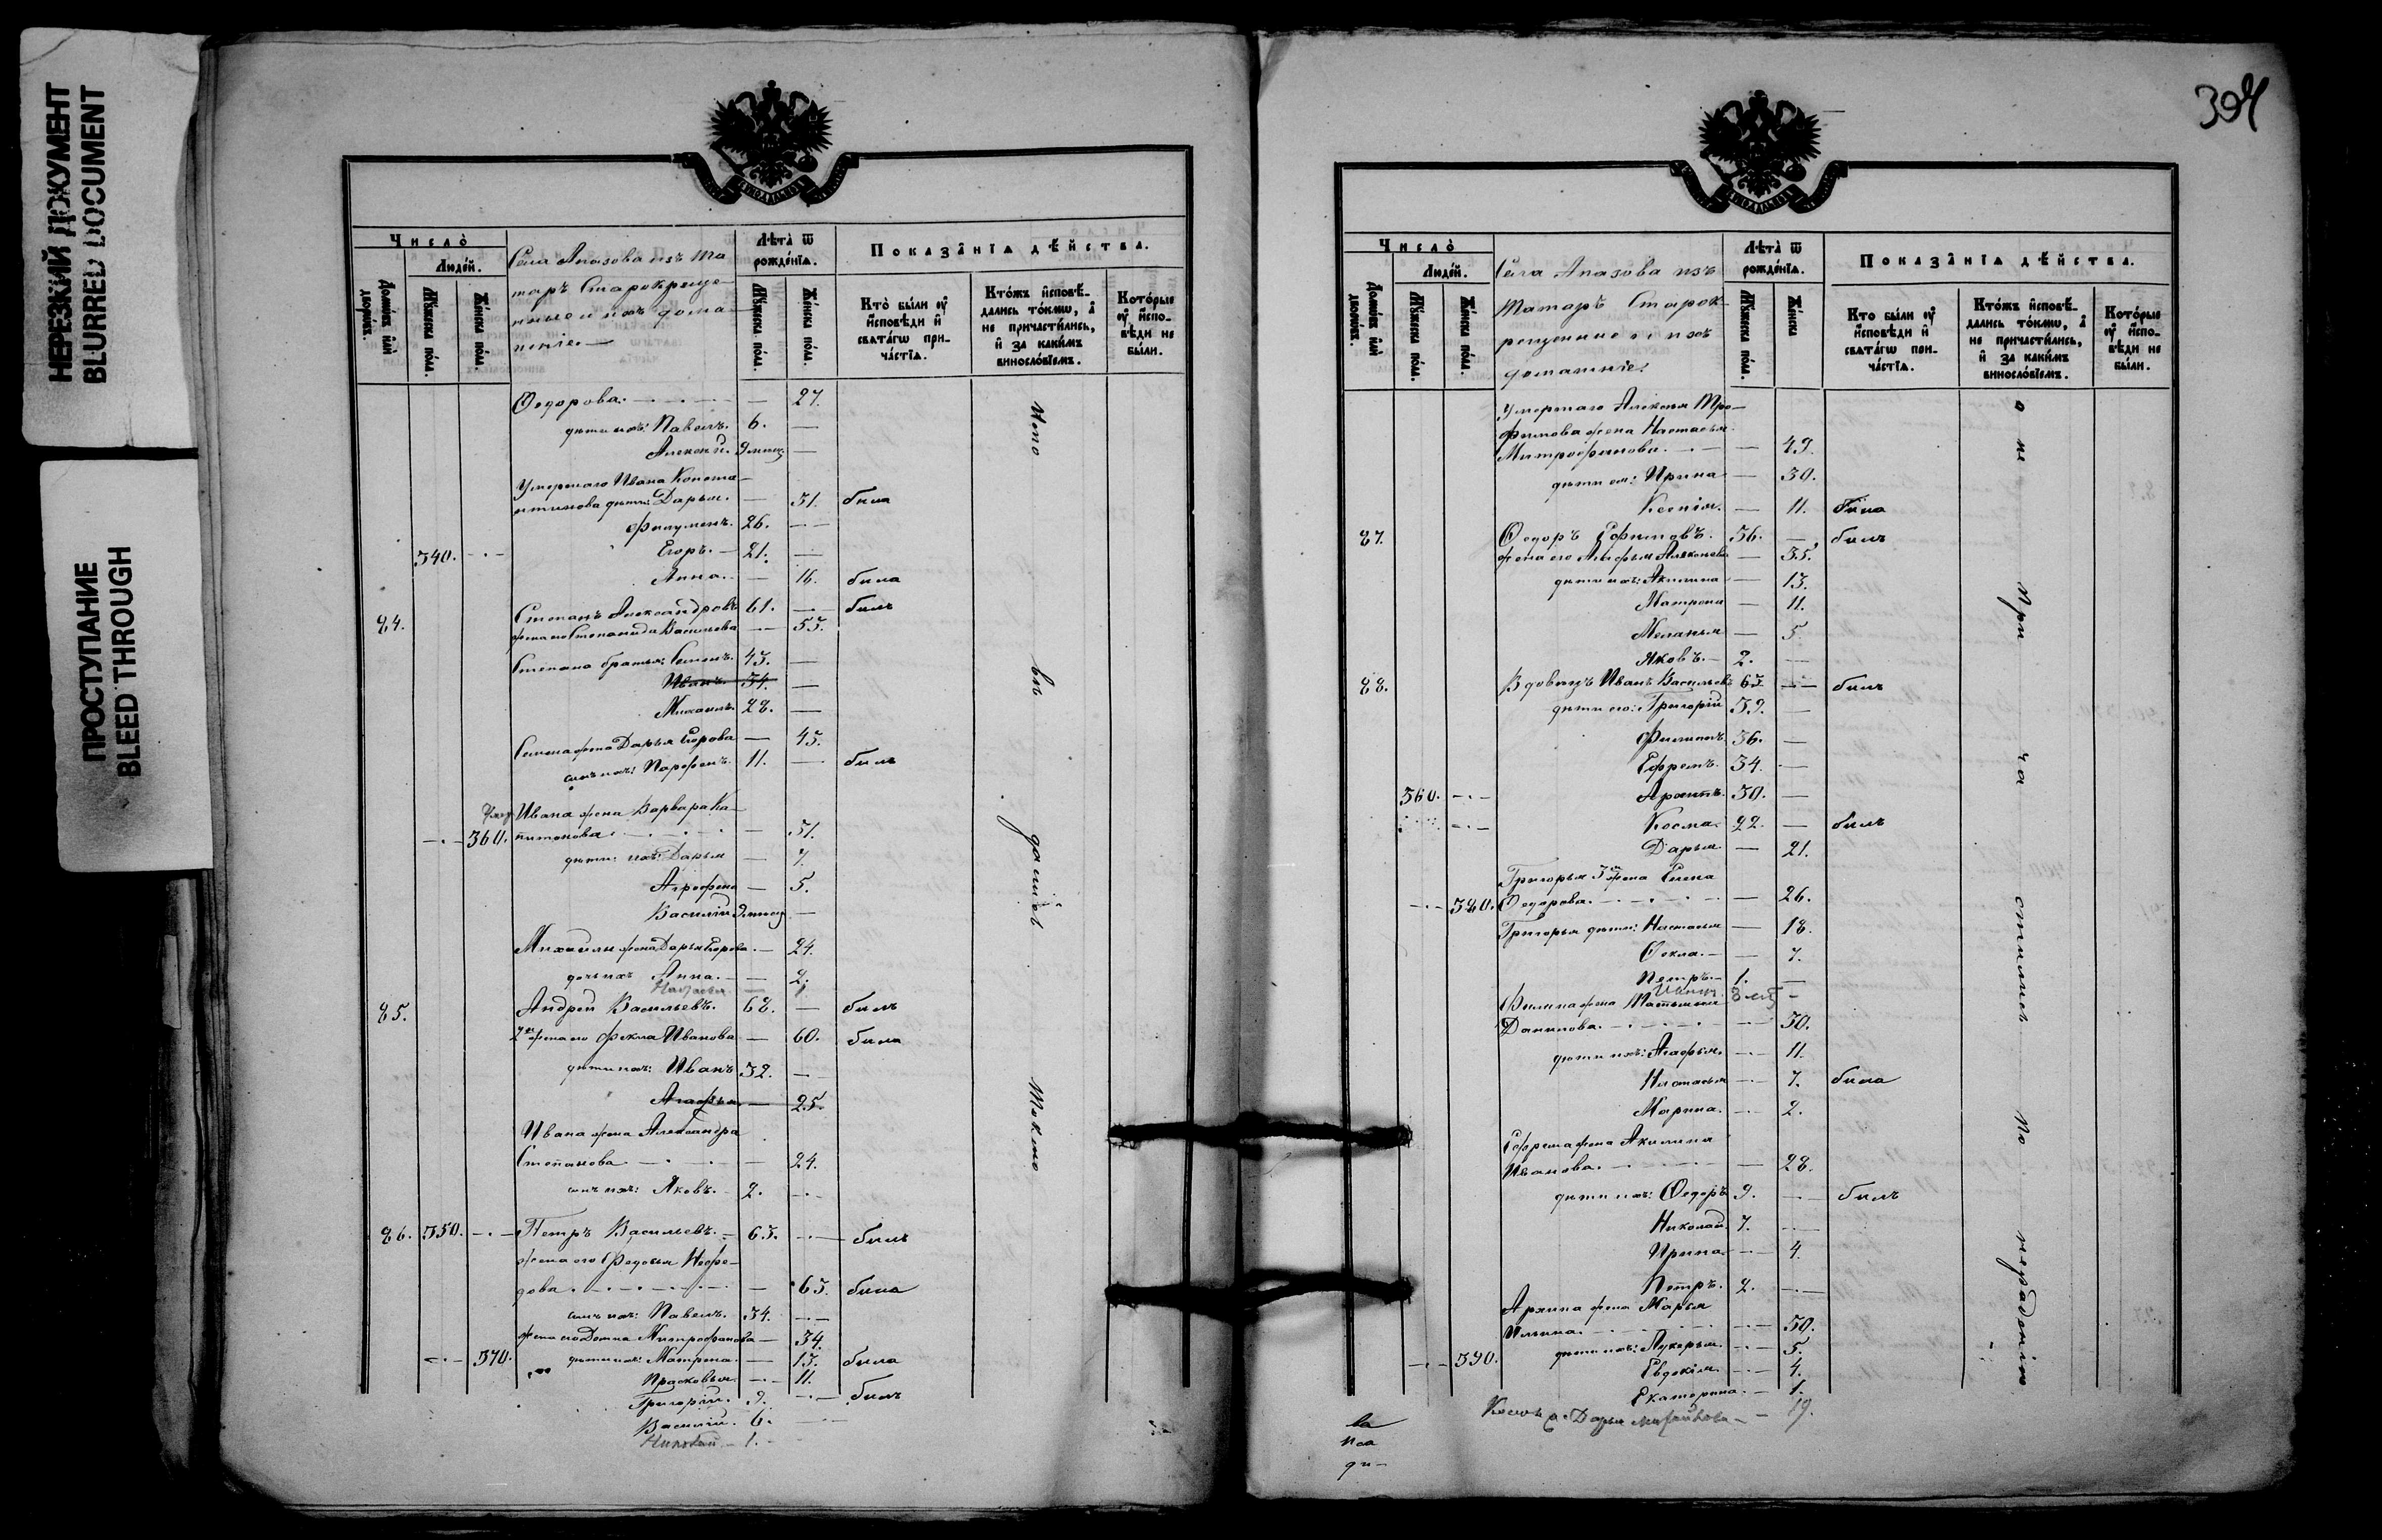 НЕРЕЗКИЙ ДОКУМЕНТ
BLURRED DOCUMENT
ПРОСТУПАНИЕ
BLEED THROUGH
Число̀
Людей.
Домовъ или дворовъ.
Мужеска пола.
Женска пола.
Села Апазова изъ Та
таръ Старокреще
ные и ихъ дома
шніе.
Лѣта ѿ рожденїѧ.
Мужеска пола.
Женска пола.
Показанїѧ дѣйства.
Кто были оу исповѣди и свѧтагѡ причастїѧ.
Ктожъ исповѣдались токмѡ, а не причастились, и за какимъ винословїемъ.
Которые оу исповѣди не были.
Ѳедорова. — 27.
дѣти ихъ: Павелъ. 6. —
Алексій. 9 мѣсяц. —
Умершаго Ивана Конста
нтинова дѣти: Дарья. — 31. была
Филуменъ. 26. —
340. Егоръ. 21. —
Анна. — 16. была
84. Степанъ Александровъ 61. — былъ
жена его Степанида Васильева — 55.
Степана братья: Семенъ. 43. —
Иванъ. 34. —
Михаилъ. 28. —
Семена жена Дарья Егорова — 45.
сынъ ихъ: Парфенъ. 11. — былъ
Умер Ивана жена Варвара Ка
360. питонова. — 31.
дѣти ихъ: Дарья — 7.
Агрофена — 5.
Василій 9 мѣсяц —
Михаилы жена Дарья Егорова. — 24.
дочь ихъ Анна. — 2.
Наталья
85. Андрей Васильевъ. 68. — былъ
2я жена его Фекла Иванова — 60. была
дѣти ихъ: Иванъ 32. —
Агафья — 25.
Ивана жена Александра
Степанова — 24.
сынъ ихъ: Яковъ. 2. —
86. 350. Петръ Васильевъ. 63. — былъ
жена его Федосья Нефе
дова. — 63. была
сынъ ихъ: Павелъ. 34. —
жена его Домна Митрофанова — 34.
370. дѣти ихъ: Матрена. — 13. была
Прасковья. — 11.
Григорій. 9. — былъ
Василій. 6.
Николай — 1.
Испо
вѣ
дались
Токмо
394
Число̀
Людей.
Домовъ или дворовъ.
Мужеска пола.
Женска пола.
Села Апазова изъ
Татаръ Старок
рещенные и ихъ
домашніе.
Лѣта ѿ рожденїѧ.
Мужеска пола.
Женска
Показанїѧ дѣйства.
Кто были оу исповѣди и свѧтагѡ причастїѧ.
Ктожъ исповѣдались токмѡ, а не причастились, и за какимъ винословїемъ.
Которые оу исповѣди не были.
Умершаго Алексея Тро
фимова жена Настасья
Митрофанова. — 49.
дѣти ея: Ирина — 30.
Ксенія. — 11. была
87. Ѳедоръ Ефимовъ. 56. — былъ
жена его Агафья Алексеева — 35.
дѣти ихъ: Акилина — 13.
Матрона — 11.
Меланья — 5
Яковъ. 2. —
88. Вдовецъ Иванъ Васильевъ 63 — былъ
дѣти его: Григорій 39. —
Филиппъ. 36. —
Ефремъ. 34. —
360. Архипъ. 30. —
Косма. 22. — былъ
Дарья. — 21.
Григорья 3я жена Елена
380. Ѳедорова. — 26.
Григорья дѣти: Настасья — 18.
Ѳекла. — 7.
Петръ. 1. —
Филиппа жена Матѣшина
Данилова. — 30.
дѣти ихъ: Агафья. — 11.
Настасья — 7. была
Марина. — 2.
Ефрема жена Акилина
Иванова. — 28.
дѣти ихъ: Ѳедоръ 9. — былъ
Николай 7. —
Ирина — 4.
Петръ. 2. —
Архипа жена Марья
Ильина. — 30.
390. дѣти ихъ: Лукерья. — 5.
Евдокія. — 4.
Екатерина. — 1.
Дарья — 19.
а не
При
ча
стились
По
нерадѣнію